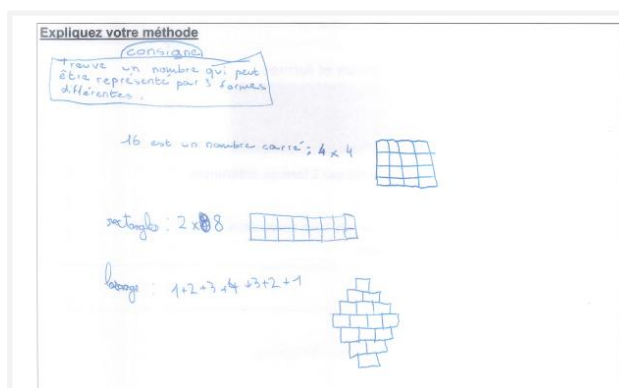 Expliquez votre méthode
consigne
Trouve un nombre qui peut
être représenté par 3 formes
différentes.
16 est un nombre carré : 4 x 4
rectangle : 2 x 8
losange : 1+2+3+4+3+2+1